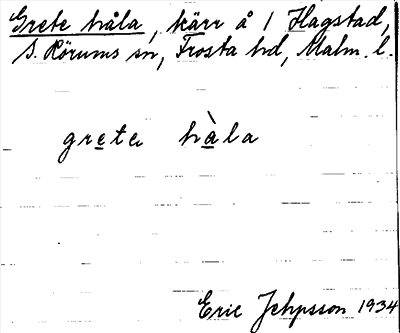 Grete håla, kärr å 1 Hagstad,
S. Rörums sn, Frosta hd, Malm. l.
grete hàla
Eric Jepsson 1934